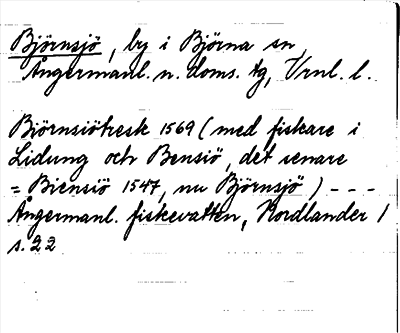 Björnsjö, by i Björna sn,
Ångermanl. n. doms. tg, Vrnl. l.
Björnsiötresk 1569 (med fiskare i
Lidung och Bensiö, det senare
= Biensiö 1547, nu Björnsjö) - - -
Ångermanl. fiskevatten, Nordlander /
s. 22